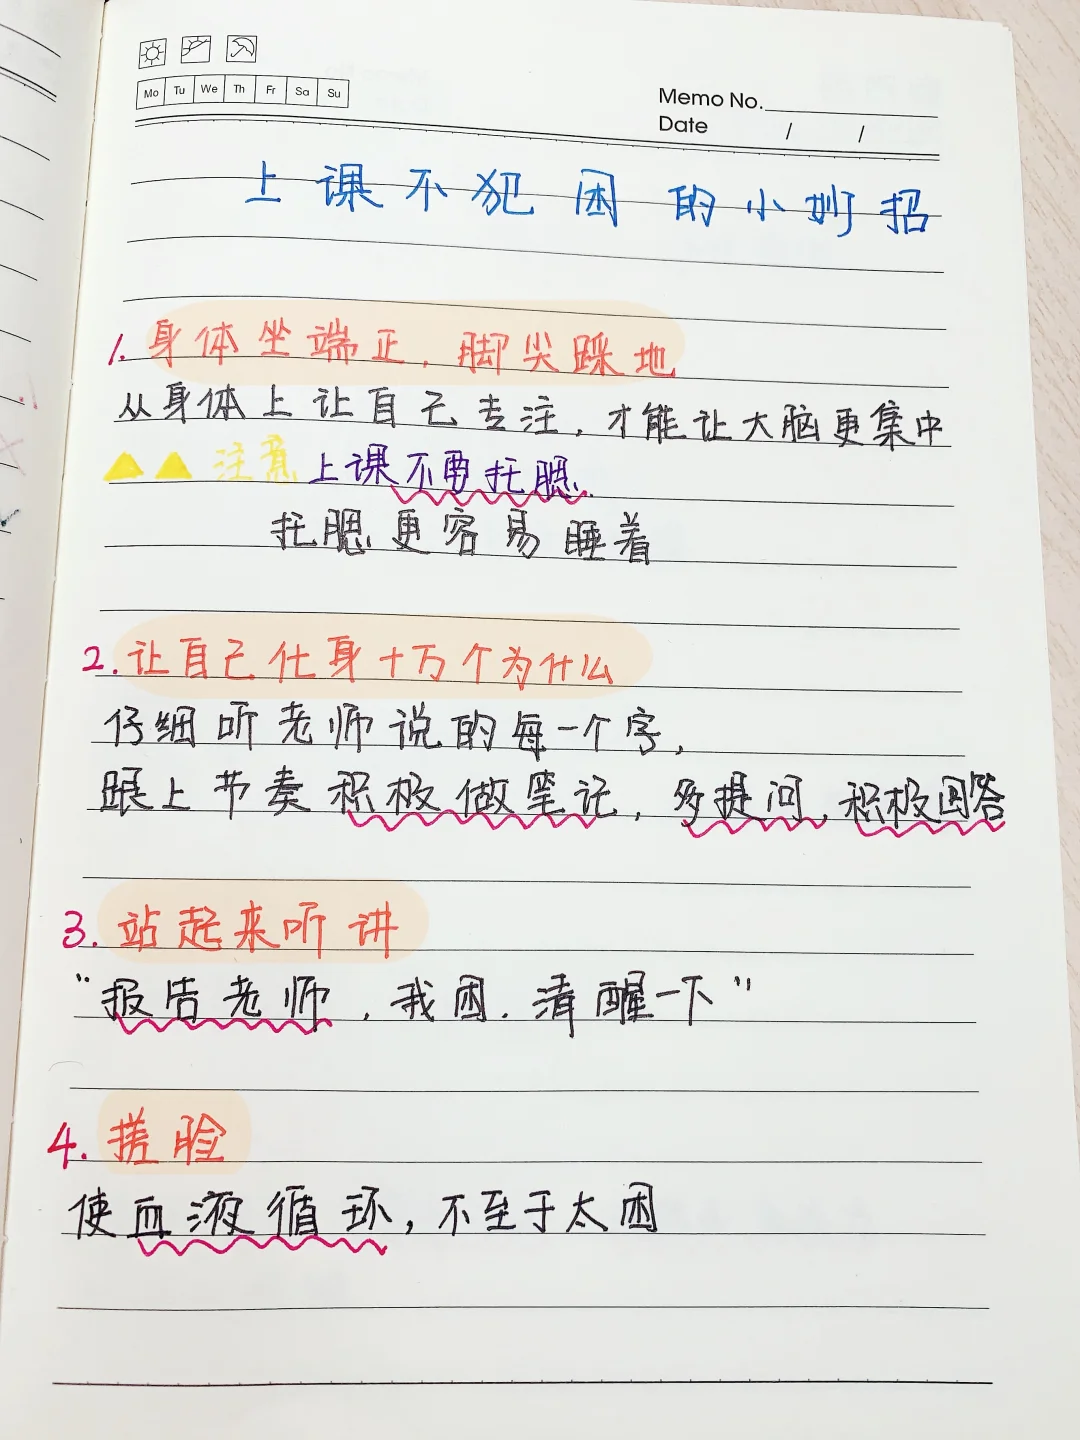 Mo Tu We Th Fr Sa Su
Memo No.
Date / /
上课不犯困的小妙招
1. 身体坐端正，脚尖踩地
从身体上让自己专注，才能让大脑更集中
注意 上课不要托腮.
托腮更容易睡着
2. 让自己化身十万个为什么
仔细听老师说的每一个字，
跟上节奏积极做笔记，多提问，积极回答
3. 站起来听讲
“报告老师，我困．清醒一下”
4. 搓脸
使血液循环，不至于太困